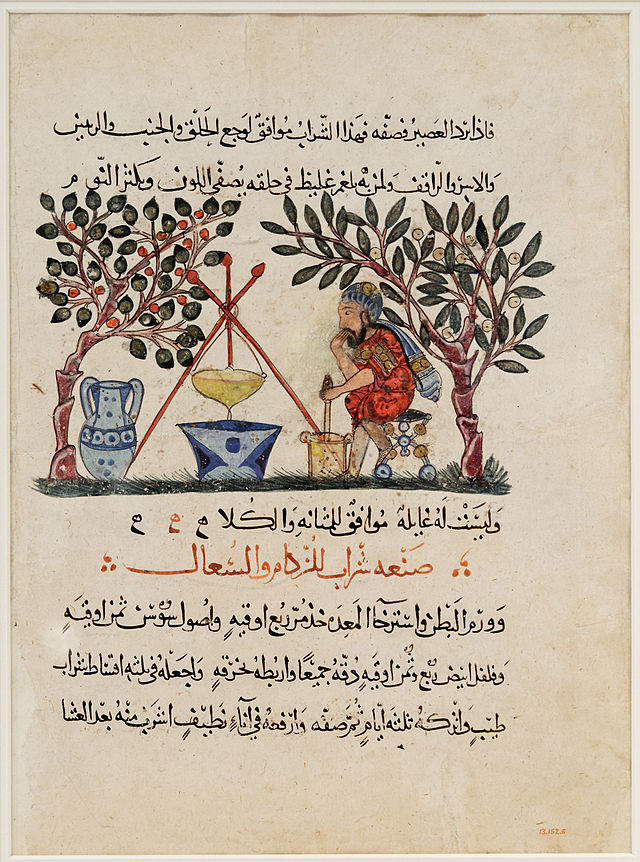 فاذا برد العصير فصفه فهذا الشراب موافق لوجع الحلق والجنب
ولمن به بلغم غليظ في حلقه يصفي اللون ويكثر النوم
وليست له غايلة موافق للمثانه والكلا
صنعه شراب للزكام والسعال
وورم البطن واسترخا المعده خذ مر ربع اوقيه واصول سوسن ثمن اوقيه
وفلفل ابيض ربع وثمن اوقيه دقه جميعا واربطه بخرقه واجعله في ثلثه اقساط شراب
طيب واتركه ثلثه ايام ثم صفه وارفعه في اناء نظيف اشرب منه بعد العشا
13.152.6